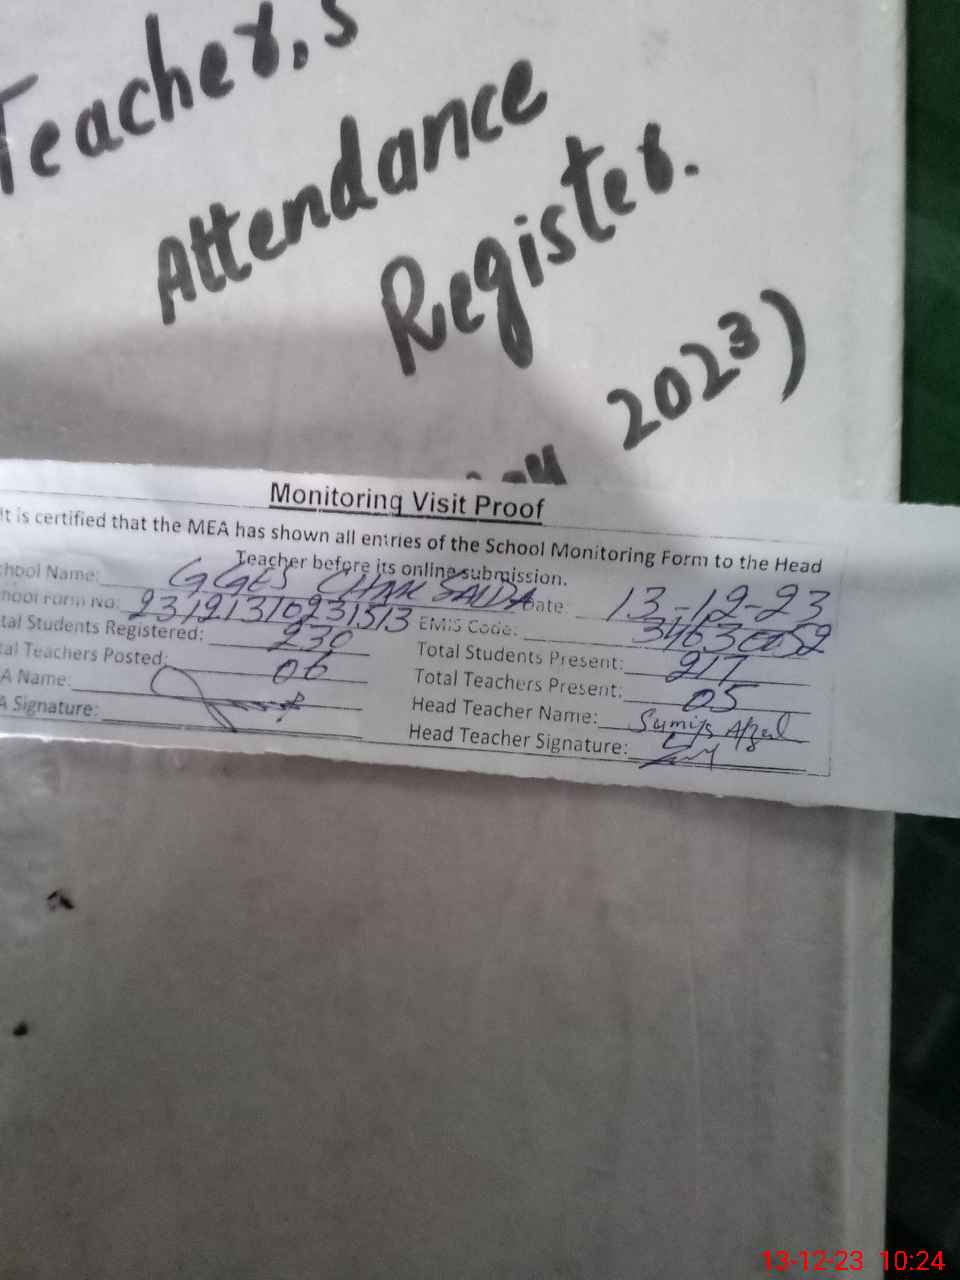 Teacher,s
Attendance
Register.
2023)
Monitoring Visit Proof
It is certified that the MEA has shown all entries of the School Monitoring Form to the Head
Teacher before its online submission.
chool Name: GGES CHAK SAIDA Date: 13-12-23
hool Form No: 23121310231513 EMIS Code: 34630052
tal Students Registered: 230 Total Students Present: 217
tal Teachers Posted: 06 Total Teachers Present: 05
A Name: Head Teacher Name: Afzal
A Signature: Head Teacher Signature:
13-12-23 10:24